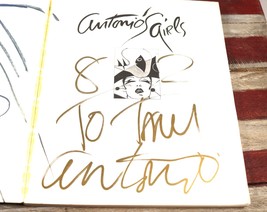 antonio's girls
TO
antonio